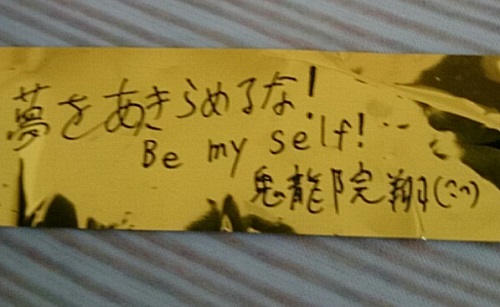 夢をあきらめるな!
Be my self!
鬼龍院翔(こつ)